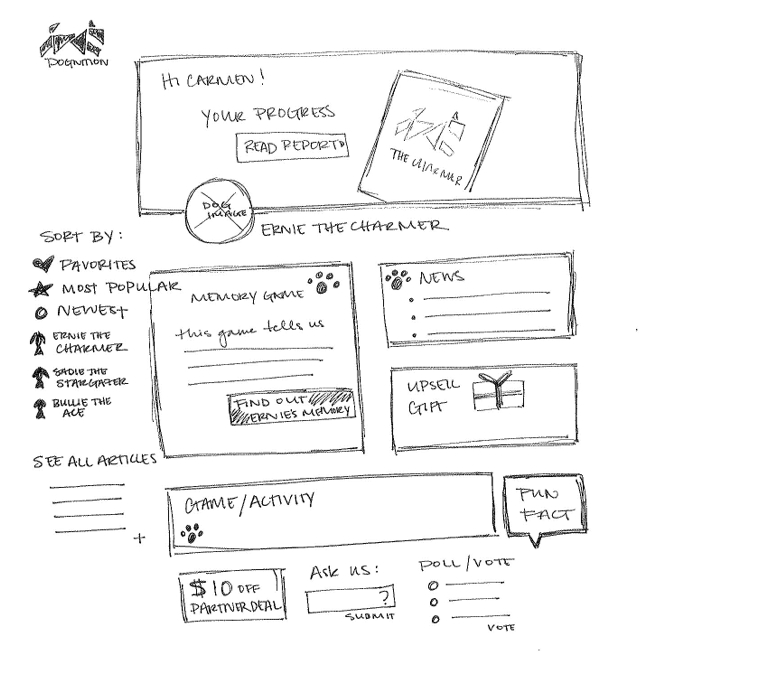 DOGNITION
HI CARMEN!
YOUR PROGRESS
READ REPORT
THE CHARMER
DOG
IMAGE
ERNIE THE CHARMER
SORT BY:
FAVORITES
MOST POPULAR
NEWEST
ERNIE THE
CHARMER
SADIE THE
STARGAZER
THE
ACE
SEE ALL ARTICLES
+
MEMORY GAME
this game tells us
FIND OUT
ERNIE'S MEMORY
NEWS
UPSELL
GIFT
GAME/ACTIVITY
FUN
FACT
$10 OFF
PARTNER DEAL
Ask us:
?
SUBMIT
POLL/VOTE
VOTE